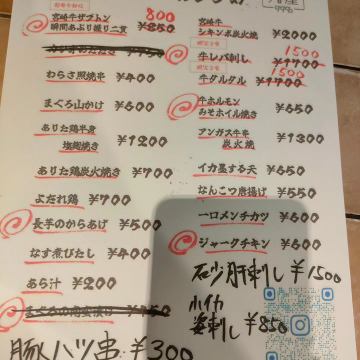 宮崎牛ザブトン 800
瞬間あぶり握り二貫 ¥850
わらさ照焼串 ¥400
まぐろ山かけ ¥600
ありた鶏半身
塩麹焼き ¥1200
ありた鶏炭火焼き ¥700
よだれ鶏 ¥700
長芋のからあげ ¥500
なす煮びたし ¥400
あら汁 ¥200
豚ハツ串 ¥300
宮崎牛
シキンボ炭火焼 ¥2000
1500
牛レバ刺し ¥1700
1500
牛タルタル ¥1700
牛ホルモン
みそホイル焼き ¥650
アンガス牛串
炭火焼 ¥1300
イカ墨する天 ¥650
なんこつ唐揚げ ¥550
一口メンチカツ ¥600
ジャークチキン ¥600
砂肝刺し ¥1500
小イカ
姿刺し ¥850